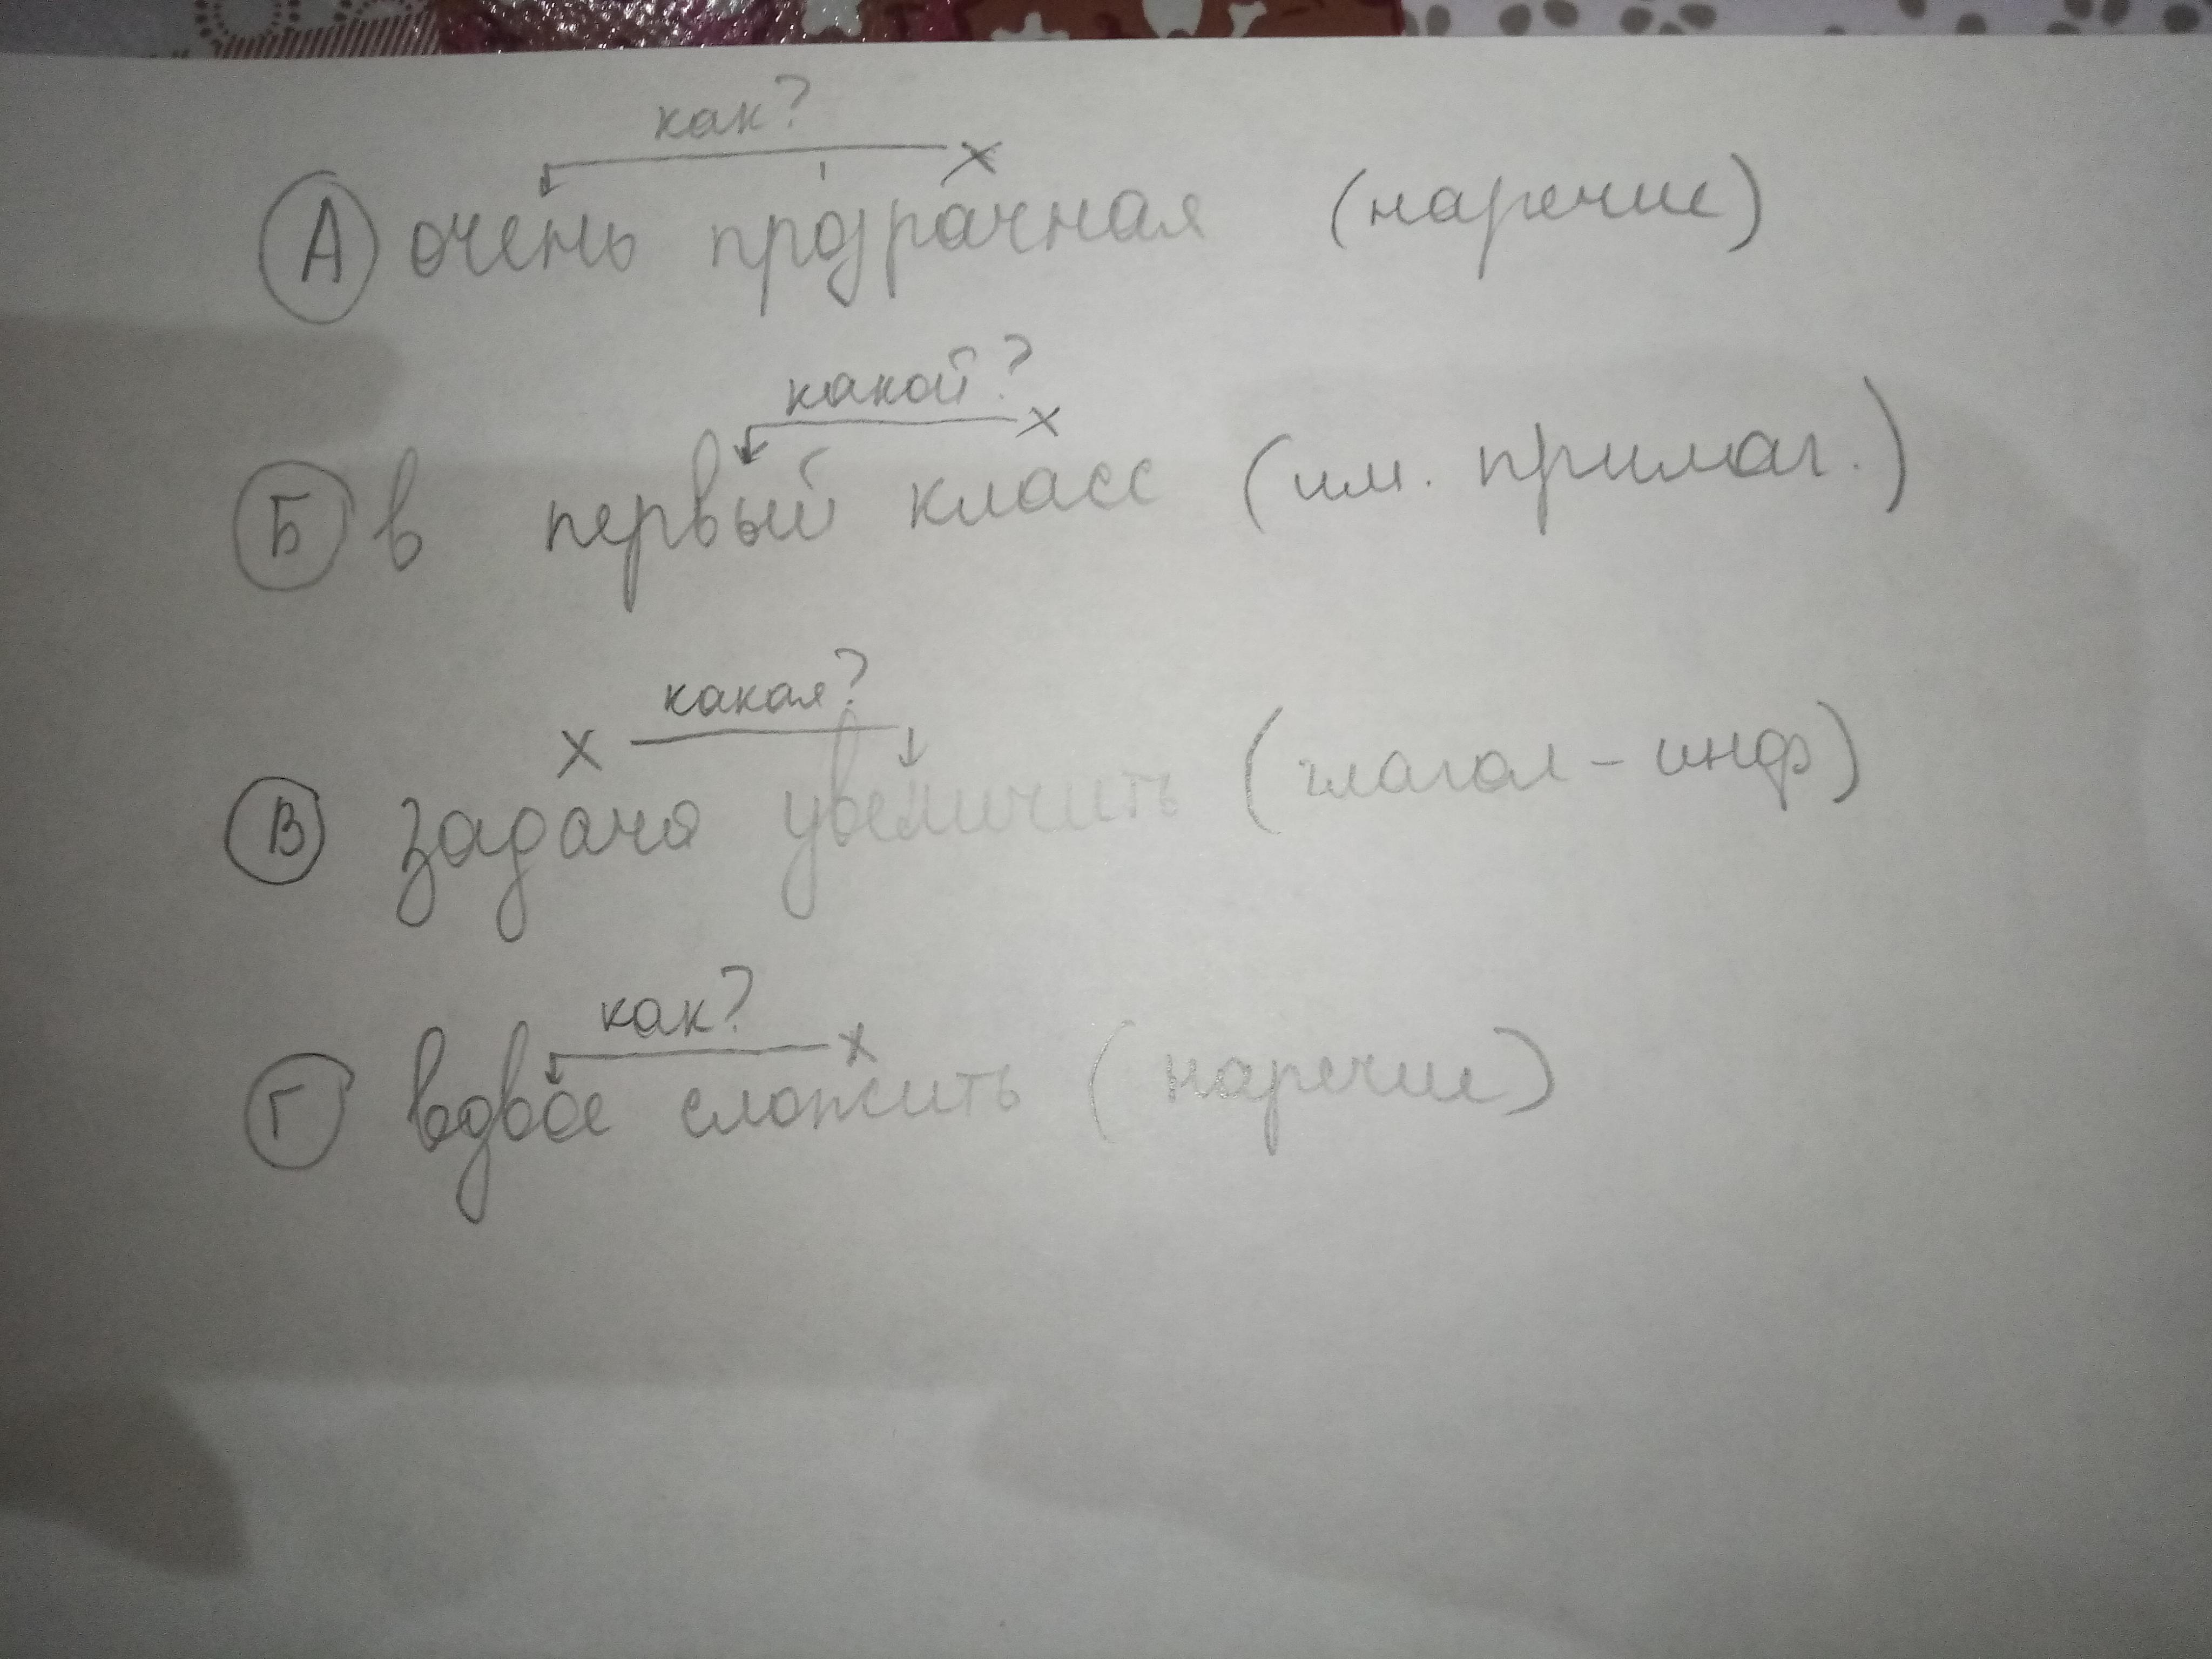 как?
А очень прозрачная (наречие)
какой?
Б в первый класс (им. прилаг.)
какая?
В задача увеличить (глагол - инф)
как?
Г вдвое сложить (наречие)